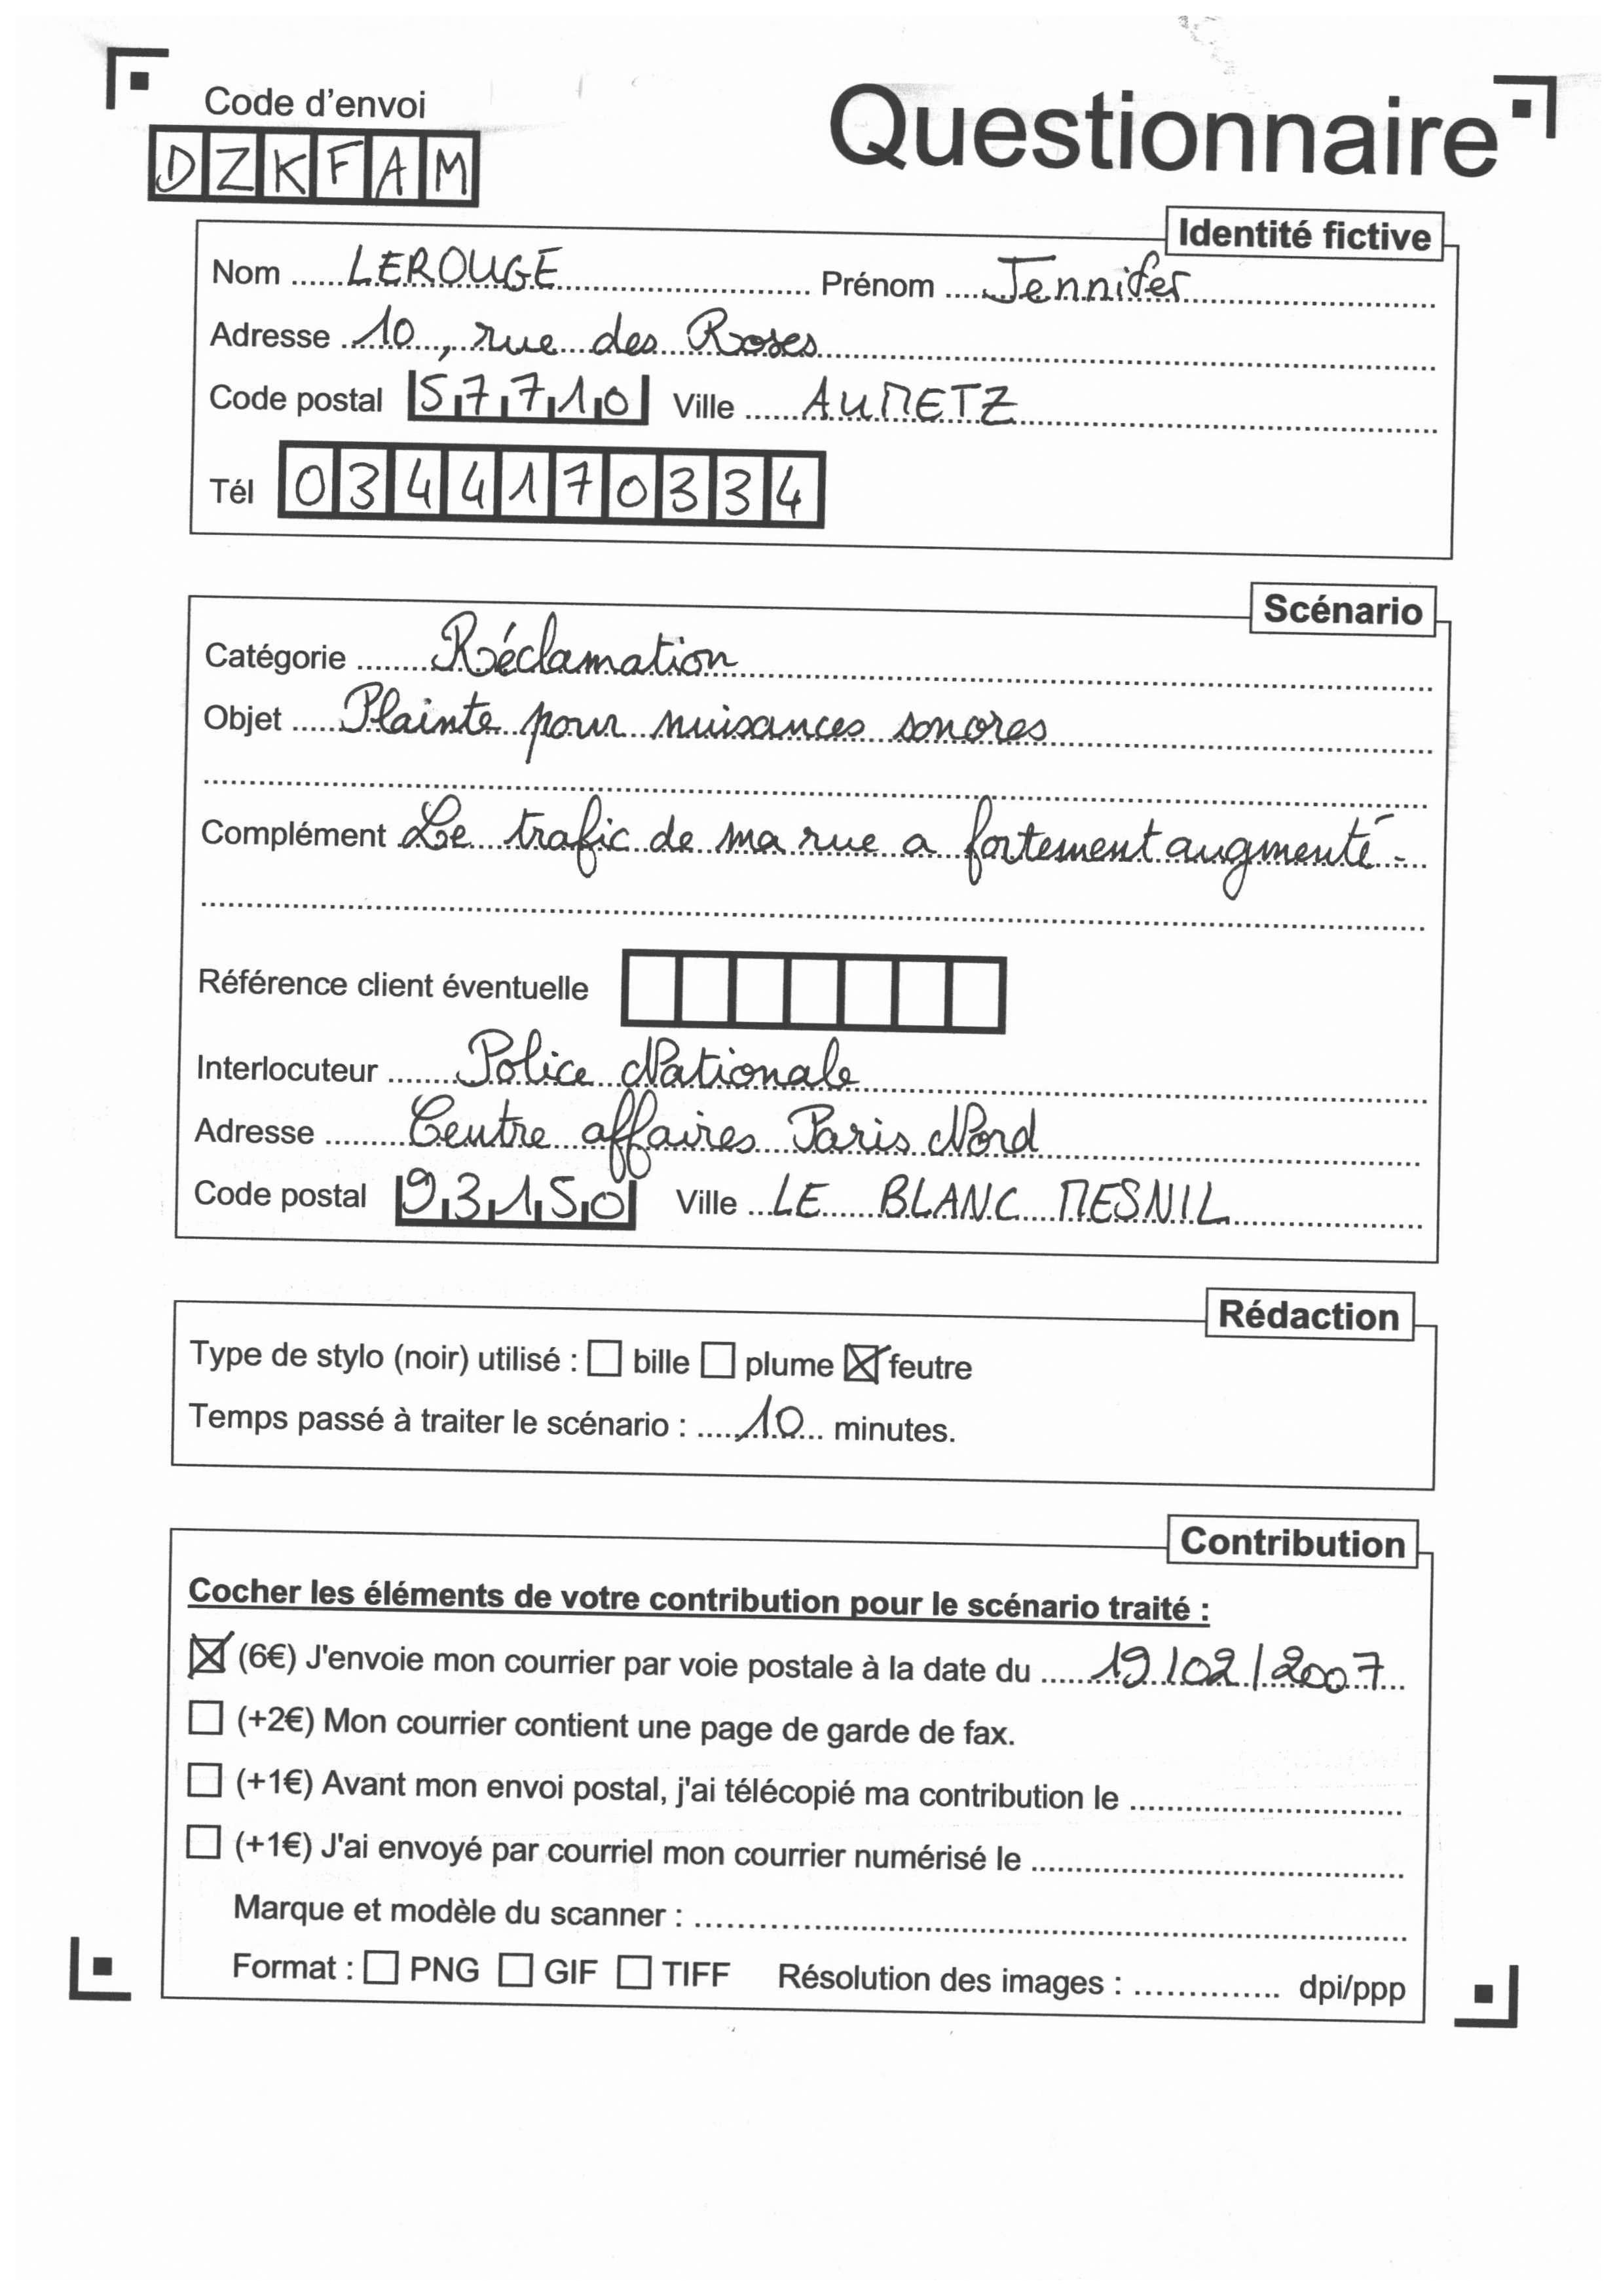 Code d'envoi
Questionnaire
DZKFAM
Identité fictive
Nom LEROUGE Prénom Jennifer
Adresse 10, rue des Roses
Code postal 57710 Ville AUMETZ
Tél 0344170334
Scénario
Catégorie Réclamation
Objet Plainte pour nuisances sonores
Complément Le trafic de ma rue a fortement augmenté.
Référence client éventuelle
Interlocuteur Police Nationale
Adresse Centre affaires Paris Nord
Code postal 93150 Ville LE BLANC MESNIL
Rédaction
Type de stylo (noir) utilisé : ☐ bille ☐ plume ☒ feutre
Temps passé à traiter le scénario : 10 minutes.
Contribution
Cocher les éléments de votre contribution pour le scénario traité :
☒ (6€) J'envoie mon courrier par voie postale à la date du 19/02/2007
☐ (+2€) Mon courrier contient une page de garde de fax.
☐ (+1€) Avant mon envoi postal, j'ai télécopié ma contribution le
☐ (+1€) J'ai envoyé par courriel mon courrier numérisé le
Marque et modèle du scanner :
Format : ☐ PNG ☐ GIF ☐ TIFF Résolution des images : dpi/ppp